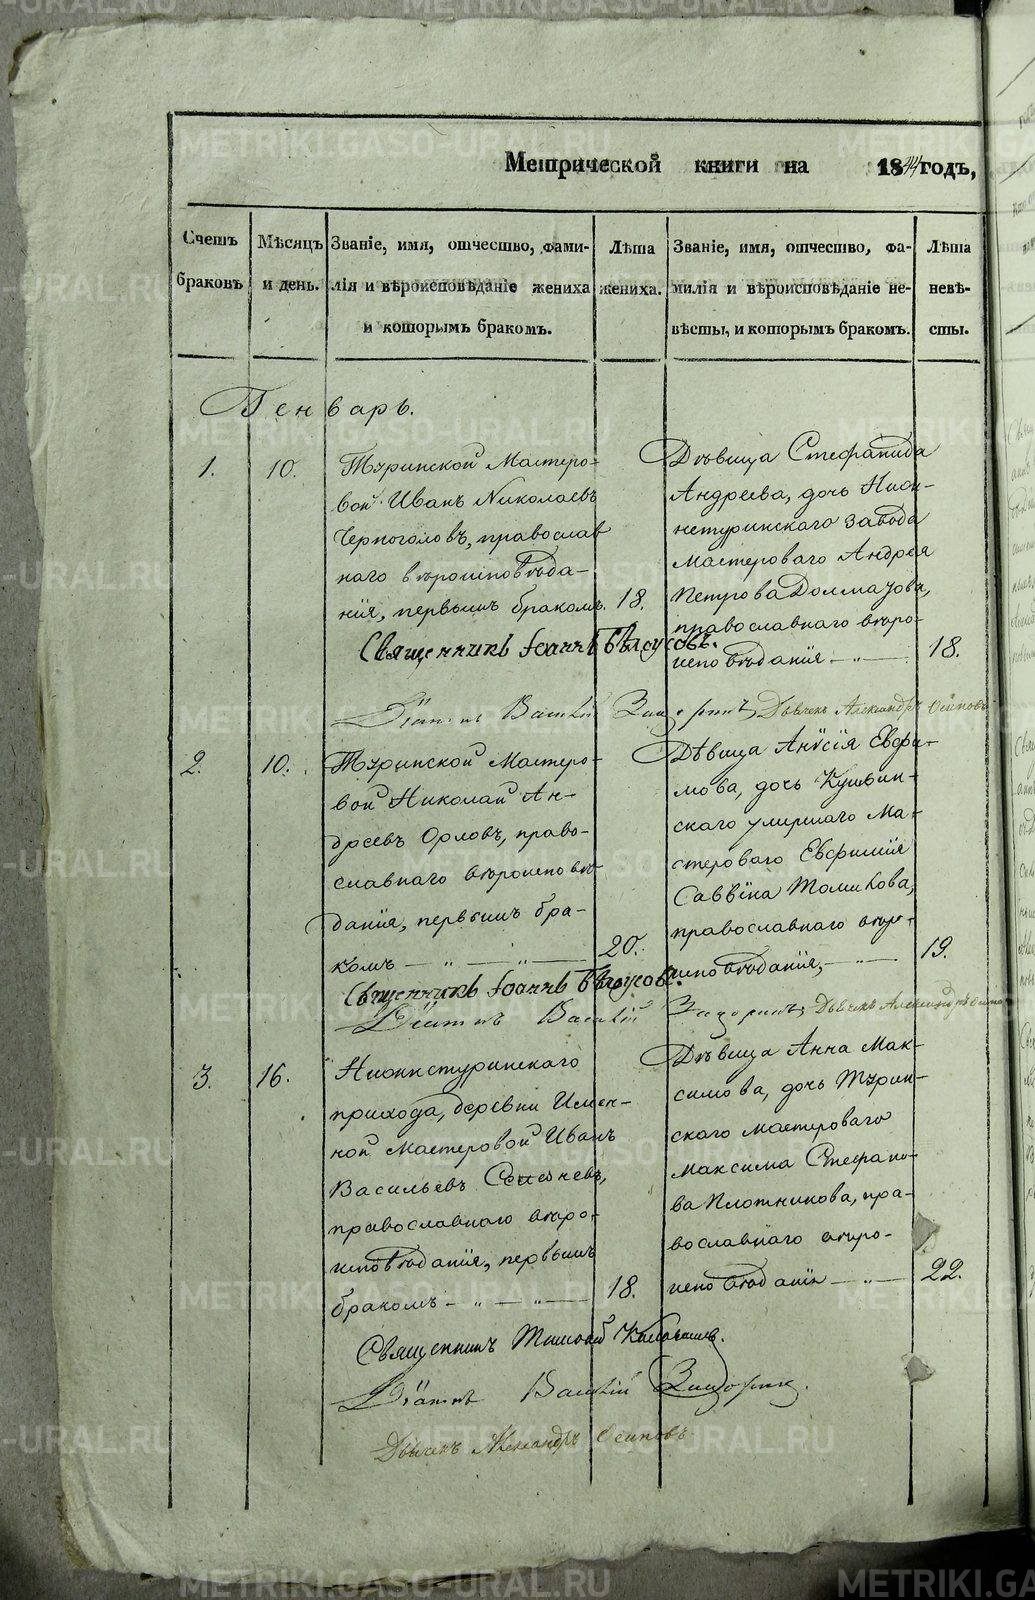 Метрической книги на 1844 годъ,
Счетъ браковъ
Мѣсяцъ и день.
Званіе, имя, отчество, фами-
лія и вѣроисповѣданіе жениха
и которымъ бракомъ.
Лѣта
жениха.
Званіе, имя, отчество, фа-
милія и вѣроисповѣданіе не-
вѣсты, и которымъ бракомъ.
Лѣта
невѣ-
сты.
Генварь.
1.
10.
Туринской Мастеро-
вой Иванъ Николаевъ
Черноголовъ, православ
наго вѣроисповѣда-
нія, первымъ бракомъ.
18.
Дѣвица Стефанида
Андреева, дочь Нижн-
нетуринскаго завода
мастероваго Андрея
Петрова Долматова,
православнаго вѣро-
исповѣданія — „ —
18.
Священникъ Іоаннъ Бѣлоусовъ.
Діаконъ Василій
Дьячекъ Александръ Осиповъ
2.
10.
Туринской Мастеро-
вой Николай Ан-
дреевъ Орловъ, право-
славнаго вѣроисповѣ-
данія, первымъ бра-
комъ — „ — „ —
20.
Дѣвица Анусія Евфи-
мова, дочь Кушвин-
скаго умершаго Ма-
стероваго Евфимія
Саввина Томилова,
православнаго вѣро-
исповѣданія, — „ —
19.
Священникъ Іоаннъ Бѣлоусовъ.
Діаконъ Василій
Дьячекъ Александръ Осиповъ
3.
16.
Нижнетуринскаго
прихода, деревни Имен-
ной мастеровой Иванъ
Васильевъ
православнаго вѣро-
исповѣданія, первымъ
бракомъ — „ — „ —
18.
Дѣвица Анна Мак-
симова, дочь Турин-
скаго мастероваго
Максима Стефано-
ва Плотникова, пра-
вославнаго вѣро-
исповѣданія — „ —
22.
Священникъ
Діаконъ Василій
Дьячекъ Александръ Осиповъ
METRIKI.GASO-URAL.RU